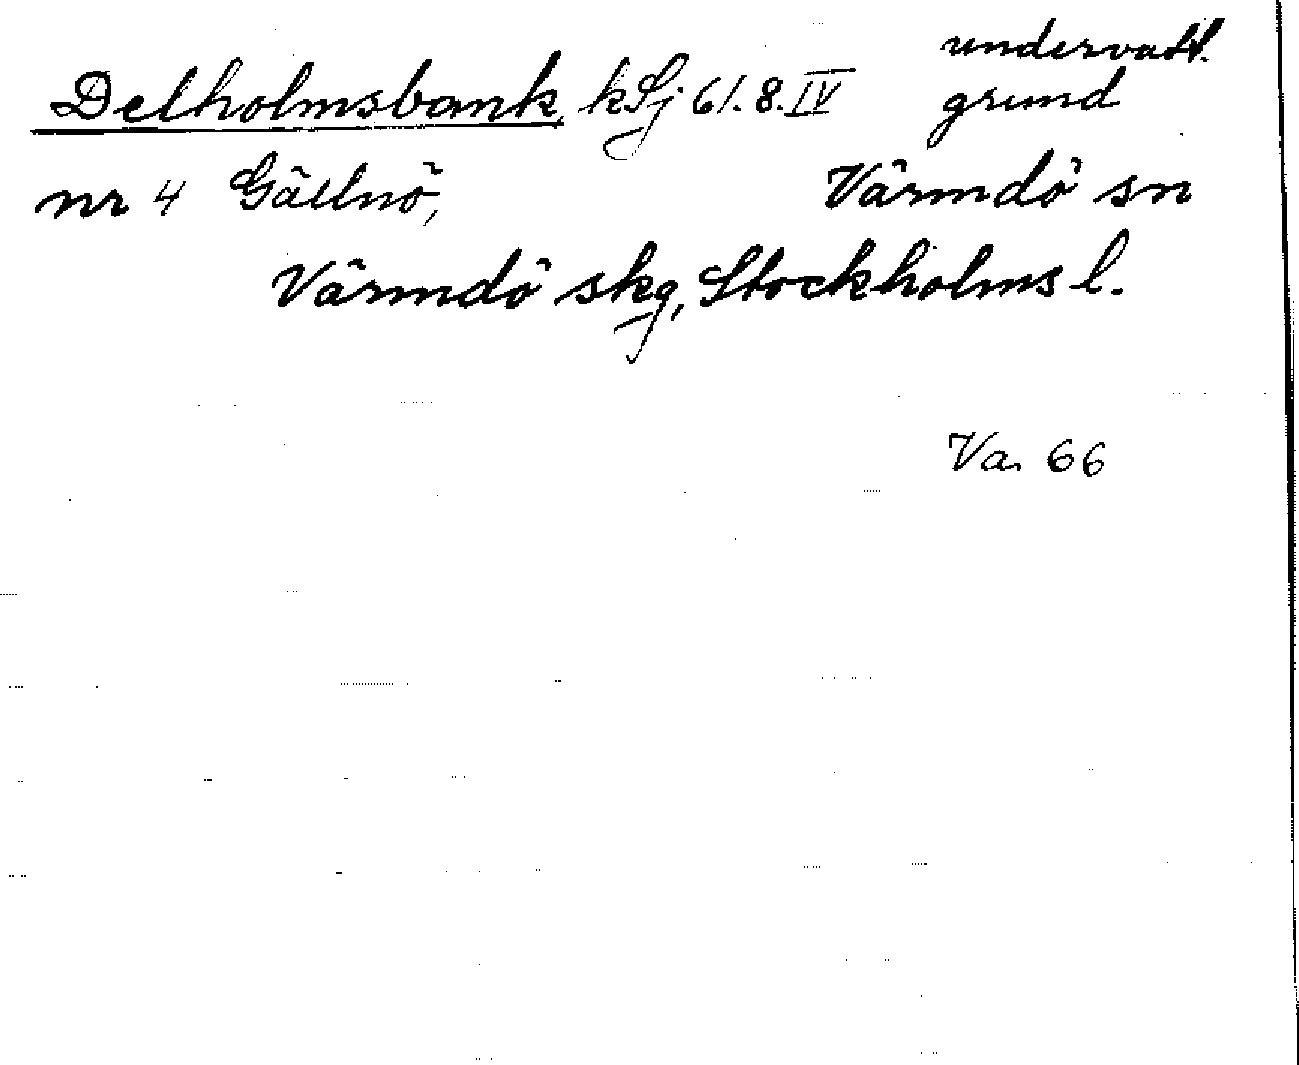 undervatt.
Delholmsbank, kSj 61.8.IV grund
nr 4 Gällnö, Värmdö sn
Värmdö skg, Stockholms l.
Va. 66